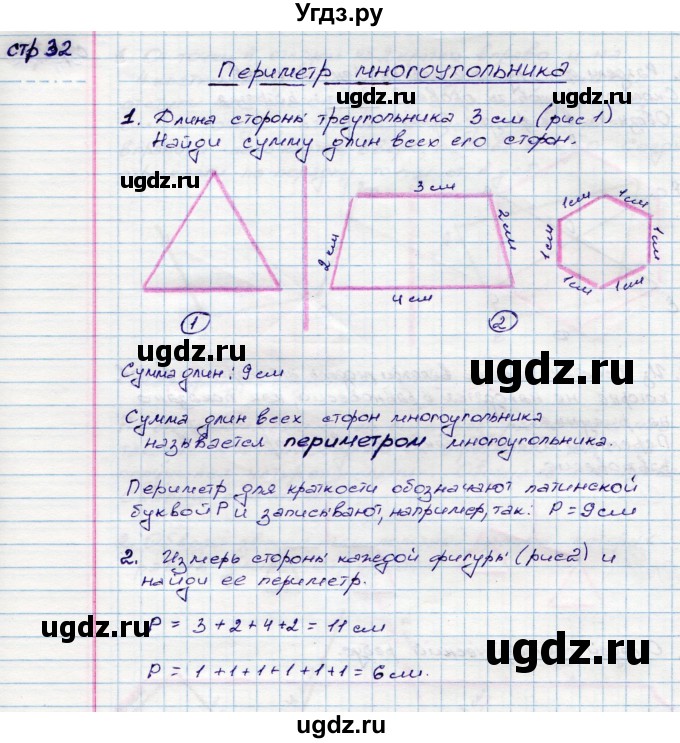 Угдз.ру
стр 32
Периметр многоугольника
ugdz.ru ugdz.ru
1. Длина стороны треугольника 3 см (рис 1)
Найди сумму длин всех его сторон.
ugdz.ru
3 см
2 см
2 см
4 см
1 см 1 см
1 см 1 см
1 см 1 см
1 2
ugdz.ru ugdz.ru
Сумма длин: 9 см
Сумма длин всех сторон многоугольника
называется периметром многоугольника.
Периметр для краткости обозначают латинской
буквой P и записывают, например, так: P = 9 см
ugdz.ru ugdz.ru
2. Измерь стороны каждой фигуры (рис 2) и
найди ее периметр.
ugdz.ru ugdz.ru
P = 3 + 2 + 4 + 2 = 11 см
P = 1 + 1 + 1 + 1 + 1 + 1 = 6 см.
ugdz.ru ugdz.ru
ugdz.ru